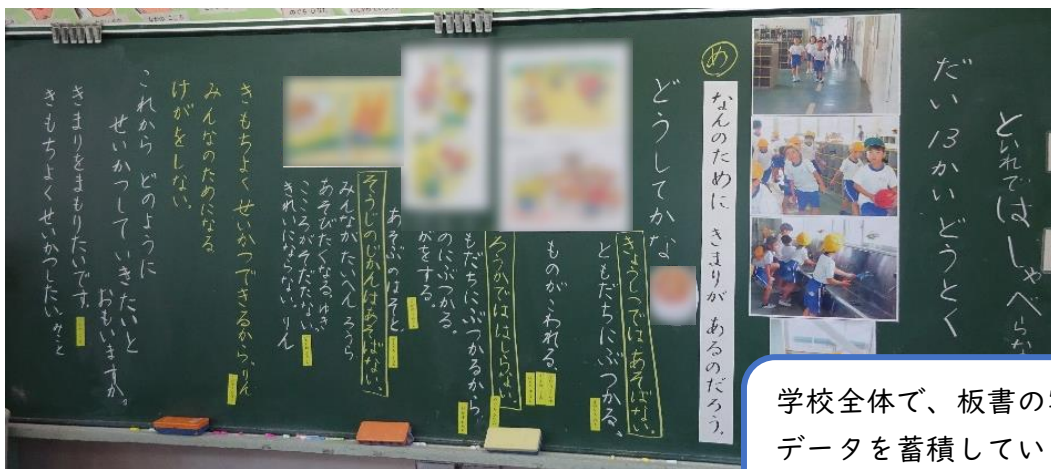 といれではしゃべらな
だい13かいどうとく
め
なんのために きまりが あるのだろう。
どうしてかな
きょうしつでは あそばない。
ともだちに ぶつかる。
ものが こわれる。
ろうかでは はしらない。
もだちにぶつかるから。
のにぶつかる。
がをする。
あそぶのはそと
そうじのじかんはあそばない。
みんなが たいへん
あそびたくなる
こころがそだたない
きれいにならない。りん
きもちよく せいかつできるから。りん
みんなのためになる
けがをしない。
これから どのように
せいかつして いきたいと
おもいますか。
きまりをまもりたいです。
きもちよくせいかつしたい。みこと
学校全体で、板書の
データを蓄積してい